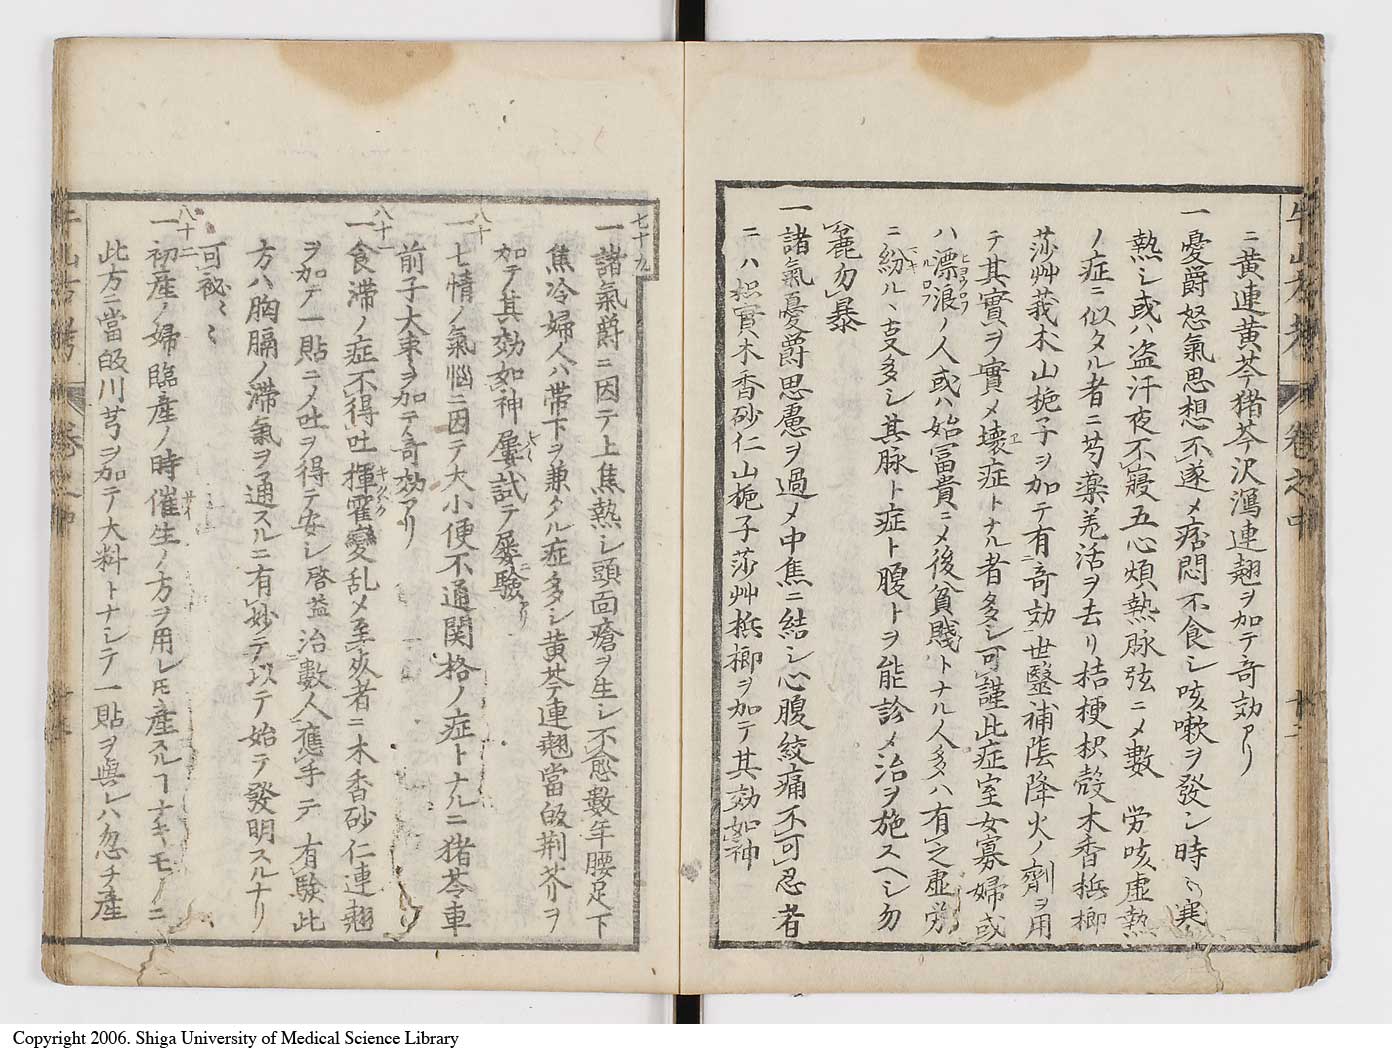 牛山方考 卷之中 廿二
ニ黄連黄芩猪苓沢瀉連翹ヲ加テ奇効アリ
一憂爵怒氣思想不遂メ痞悶不食シ咳嗽ヲ發シ時〻寒
熱シ或ハ盗汗夜不寢五心煩熱脉弦ニメ數 労咳虚熱
ノ症ニ似タル者ニ芍藥羌活ヲ去リ桔梗枳殻木香梹榔
莎艸莪木山梔子ヲ加テ有奇効世醫補陰降火ノ劑ヲ用
テ其實ヲ實メ壊症トナル者多シ可謹此症室女寡婦或
ハ漂浪ノ人或ハ始冨貴ニメ後貧賤トナル人多ハ有之虚労
ニ紛ルヽ支多シ其脉ト症ト腹トヲ能診メ治ヲ施スヘシ勿
麁勿暴
一諸氣憂爵思慮ヲ過メ中焦ニ結シ心腹絞痛不可忍者
ニハ枳實木香砂仁山梔子莎艸梹榔ヲ加テ其効如神
七十九
一諸氣爵ニ因テ上焦熱シ頭面瘡ヲ生シ不愈數年腰足下
焦冷婦人ハ帯下ヲ兼タル症多シ黄芩連翹當皈荆芥ヲ
加テ其効如神屢試テ屢驗
八十
一七情ノ氣惱ニ因テ大小便不通関格ノ症トナルニ猪苓車
前子大棗ヲ加テ奇効アリ
八十一
一食滞ノ症不得吐揮霍變乱メ至死者ニ木香砂仁連翹
ヲ加テ一貼ニメ吐ヲ得テ安シ啓益治數人應手テ有驗此
方ハ胸膈ノ滞氣ヲ通スルニ有妙テ以テ始テ發明スルナリ
可祕〻〻
八十二
一初産ノ婦臨産ノ時催生ノ方ヲ用レモ産スルヿナキモノニ
此方ニ當皈川芎ヲ加テ大料トナシテ一貼ヲ與レハ忽チ産
牛山方考 卷之中
Copyright 2006. Shiga University of Medical Science Library